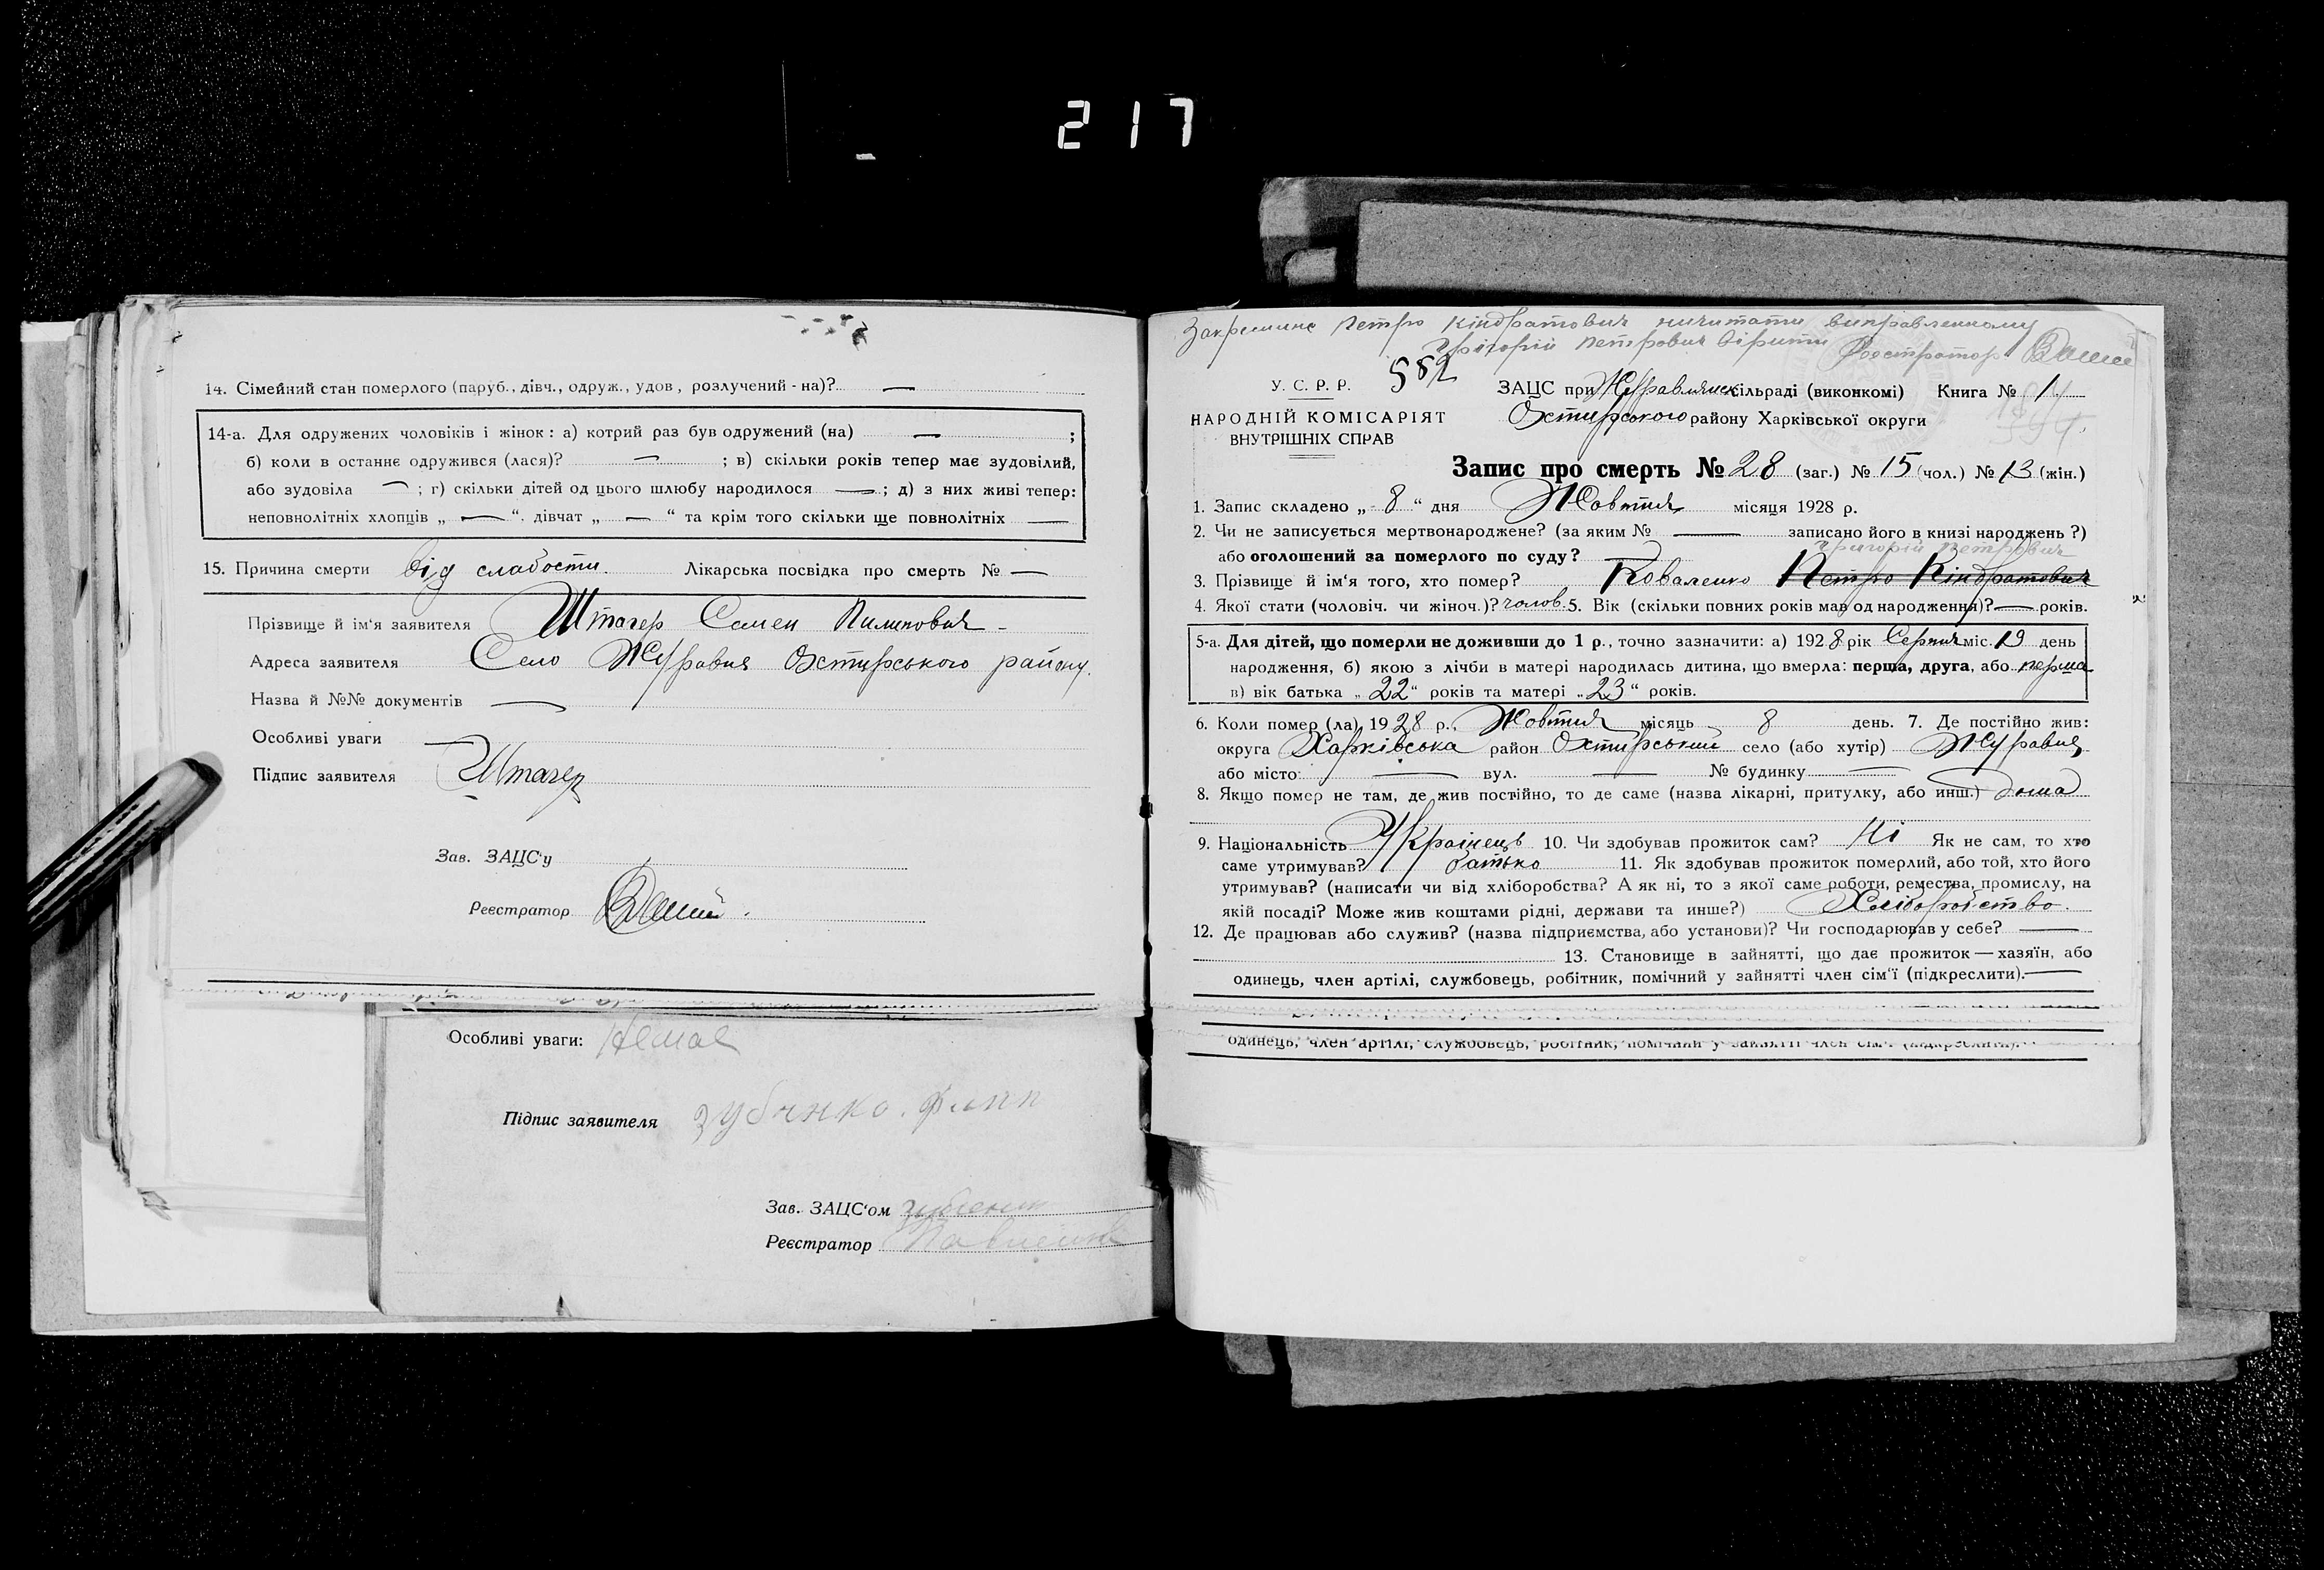 217
14. Сімейний стан померлого (паруб., дівч., одруж., удов., розлучений-на)? —
14-а. Для одружених чоловіків і жінок: а) котрий раз був одружений (на) — ;
б) коли в останнє одружився (лася)? — ; в) скільки років тепер має зудовілий,
або зудовіла — ; г) скільки дітей од цього шлюбу народилося — ; д) з них живі тепер:
неповнолітніх хлопців „ — “, дівчат „ — “ та крім того скільки ще повнолітніх —
15. Причина смерти від слабости. Лікарська посвідка про смерть № —
Прізвище й ім'я заявителя Штагер Семен Пилипович -
Адреса заявителя Село Журавня Охтирського району.
Назва й №№ документів —
Особливі уваги —
Підпис заявителя Штагер
Зав. ЗАЦС'у
Реєстратор
Особливі уваги: Немає
Підпис заявителя
Зав. ЗАЦС'ом
Реєстратор
Закреслине Петро Кіндратович ничитати виправленному
Григорій Петрович вірити Реєстратор
У. С. Р. Р. 582 ЗАЦС при Журавлянск сільраді (виконкомі) Книга № 1
НАРОДНІЙ КОМІСАРІЯТ Охтирського району Харківської округи
ВНУТРІШНІХ СПРАВ
Запис про смерть № 28 (заг.) № 15 (чол.) № 13 (жін.)
1. Запис складено „ 8 “ дня Жовтня місяця 1928 р.
2. Чи не записується мертвонароджене? (за яким № — записано його в книзі народжень?)
або оголошений за померлого по суду? —
Григорій Петрович
3. Прізвище й ім'я того, хто помер? Коваленко Петро Кіндратович
4. Якої стати (чоловіч. чи жіноч.)? чолов. 5. Вік (скільки повних років мав од народження)? — років.
5-а. Для дітей, що померли не доживши до 1 р., точно зазначити: а) 1928 рік Серпня міс. 19 день
народження, б) якою з лічби в матері народилась дитина, що вмерла: перша, друга, або перша
в) вік батька „ 22 “ років та матері „ 23 “ років.
6. Коли помер (ла), 1928 р., Жовтня місяць 8 день. 7. Де постійно жив:
округа Харківська район Охтирський село (або хутір) Журавня
або місто: — вул. — № будинку —
8. Якщо помер не там, де жив постійно, то де саме (назва лікарні, притулку, або инш.) дома
9. Національність Українець 10. Чи здобував прожиток сам? Ні Як не сам, то хто
саме утримував? батько 11. Як здобував прожиток померлий, або той, хто його
утримував? (написати чи від хліборобства? А як ні, то з якої саме роботи, ремества, промислу, на
якій посаді? Може жив коштами рідні, держави та инше?) Хліборобство.
12. Де працював або служив? (назва підприємства, або установи)? Чи господарював у себе? —
13. Становище в зайнятті, що дає прожиток — хазяїн, або
одинець, член артілі, службовець, робітник, помічний у зайнятті член сім'ї (підкреслити). —
одинець, член артілі, службовець, робітник, помічний у зайнятті член сім'ї (підкреслити).